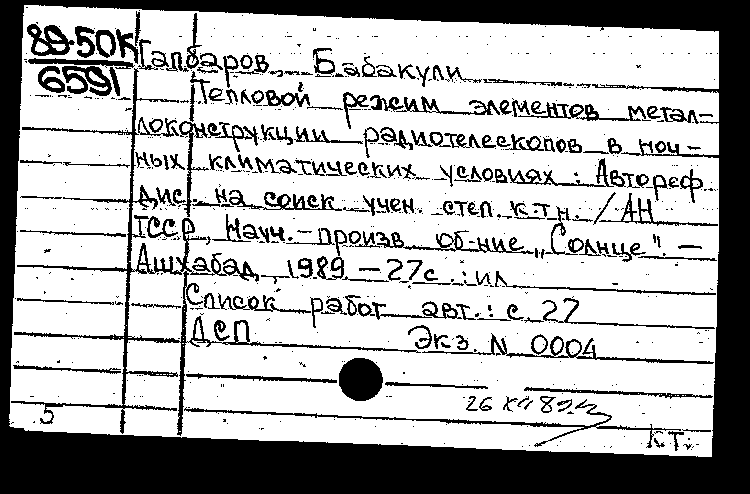 89-50К
6591
Гапбаров, Бабакули
Тепловой режим элементов метал-
локонструкции радиотелескопов в ноч-
ных климатических условиях : Автореф.
дис. на соиск. учен. степ. к.т.н. / АН
ТССР, Науч.-произв. об-ние „Солнце". —
Ашхабад, 1989. — 27с. : ил
Список работ авт.: с. 27
ДСП Экз. N 0004
26 XII 89г
5
К Т.